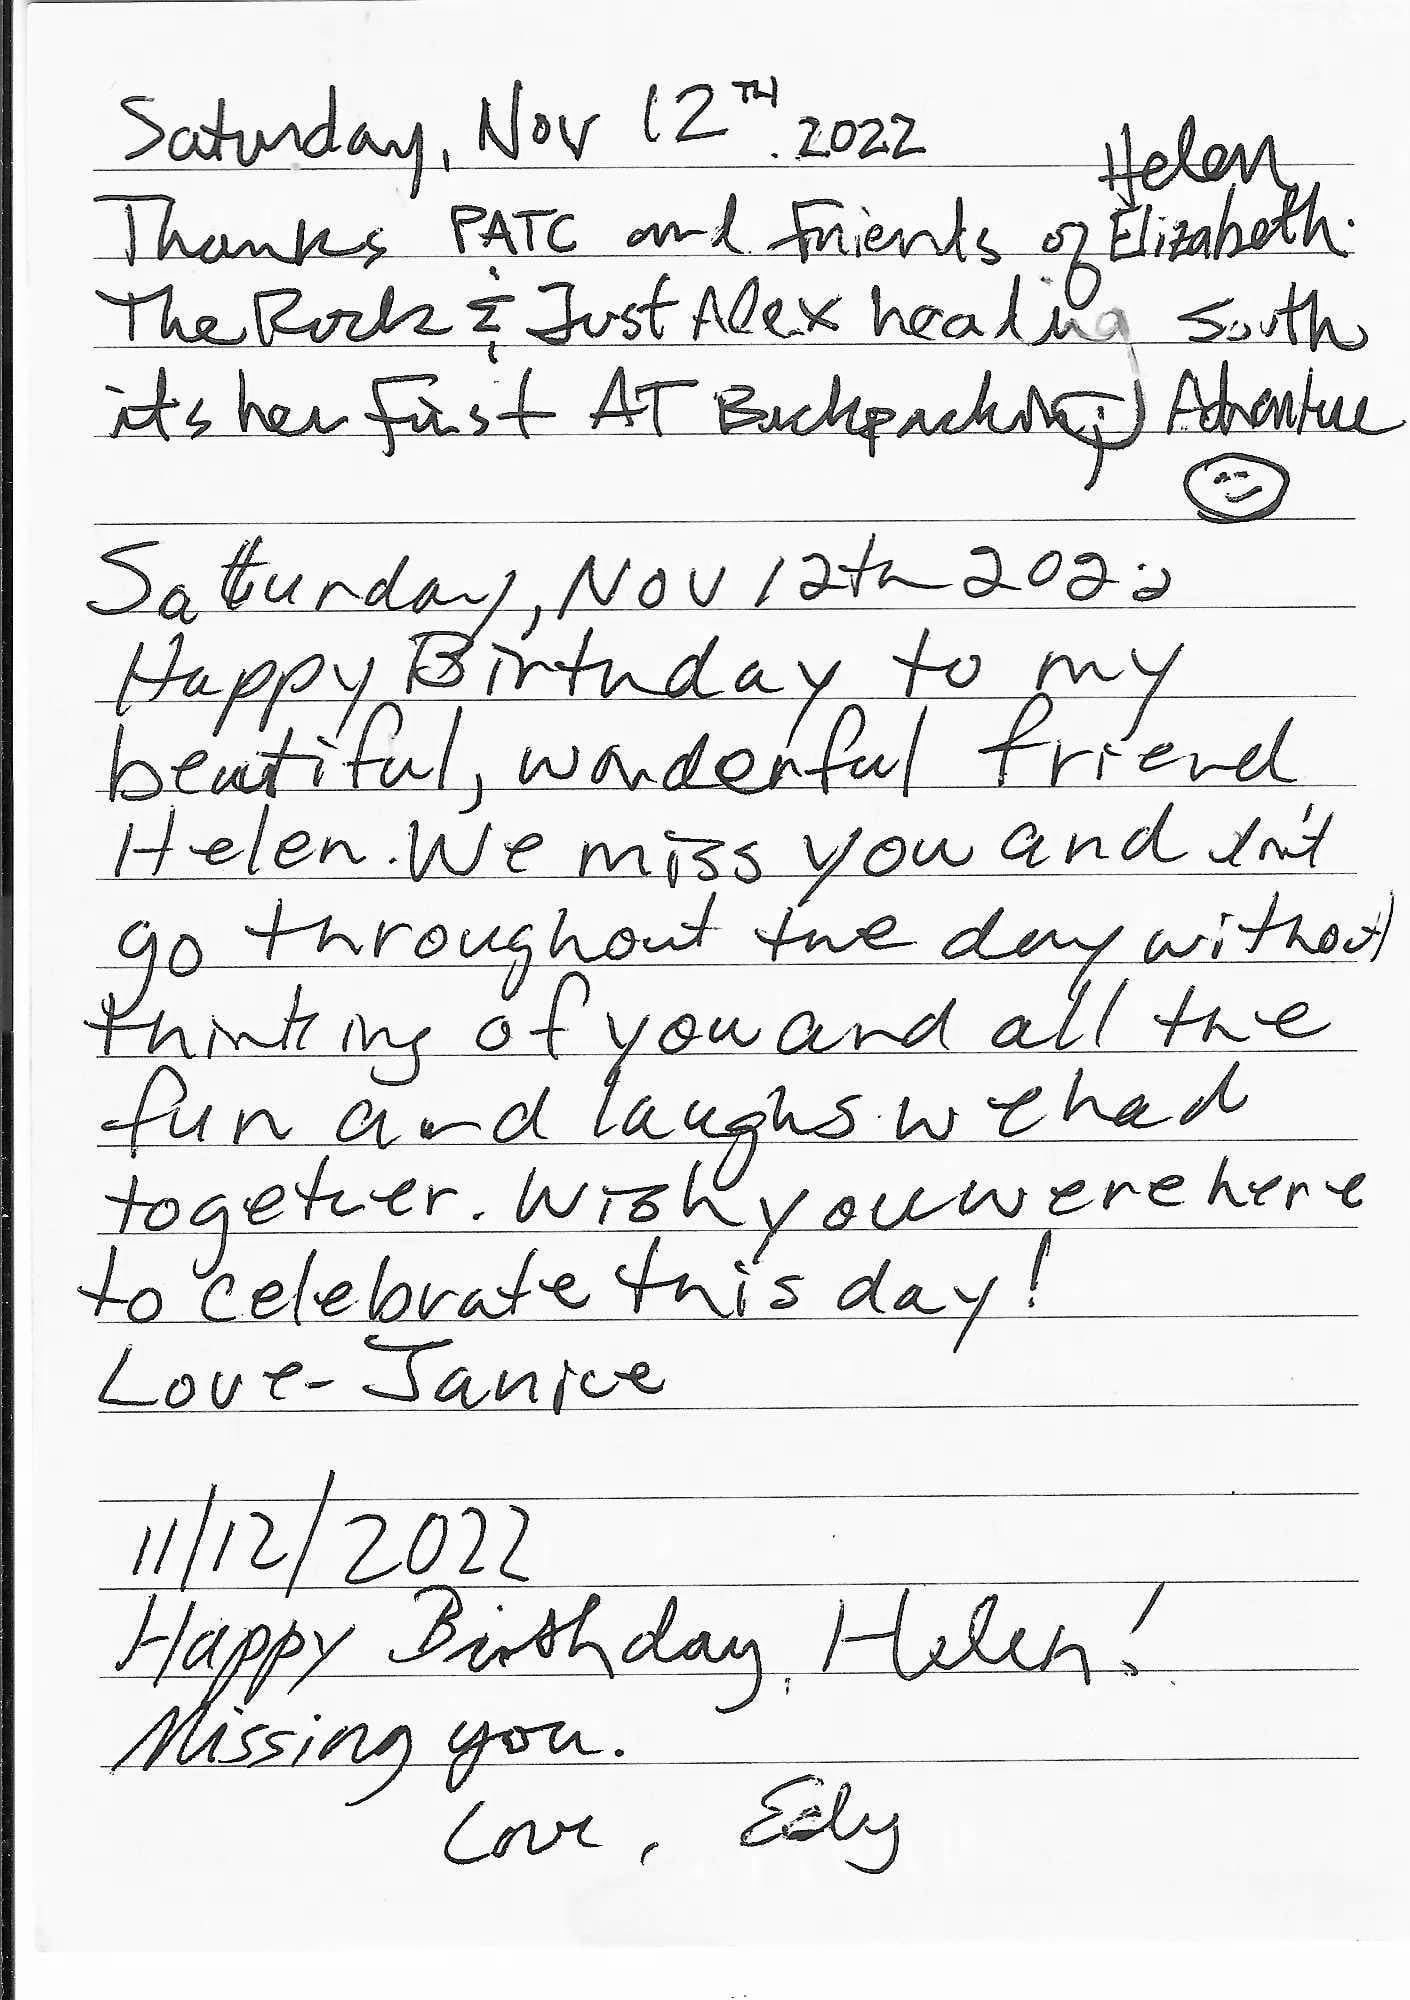 Saturday, Nov 12TH. 2022
Helen
Thanks PATC and Friends of Elizabeth.
The Rock & Just Alex heading South
its her First AT Backpacking Adventure
Satturday, Nov 12th 2022
Happy Birthday to my
beautiful, wonderful friend
Helen. We miss you and don't
go throughout the day without
thinking of you and all the
fun and laughs we had
together. Wish you were here
to celebrate this day!
Love - Janice
11/12/2022
Happy Birthday, Helen!
Missing you.
Love, Edy